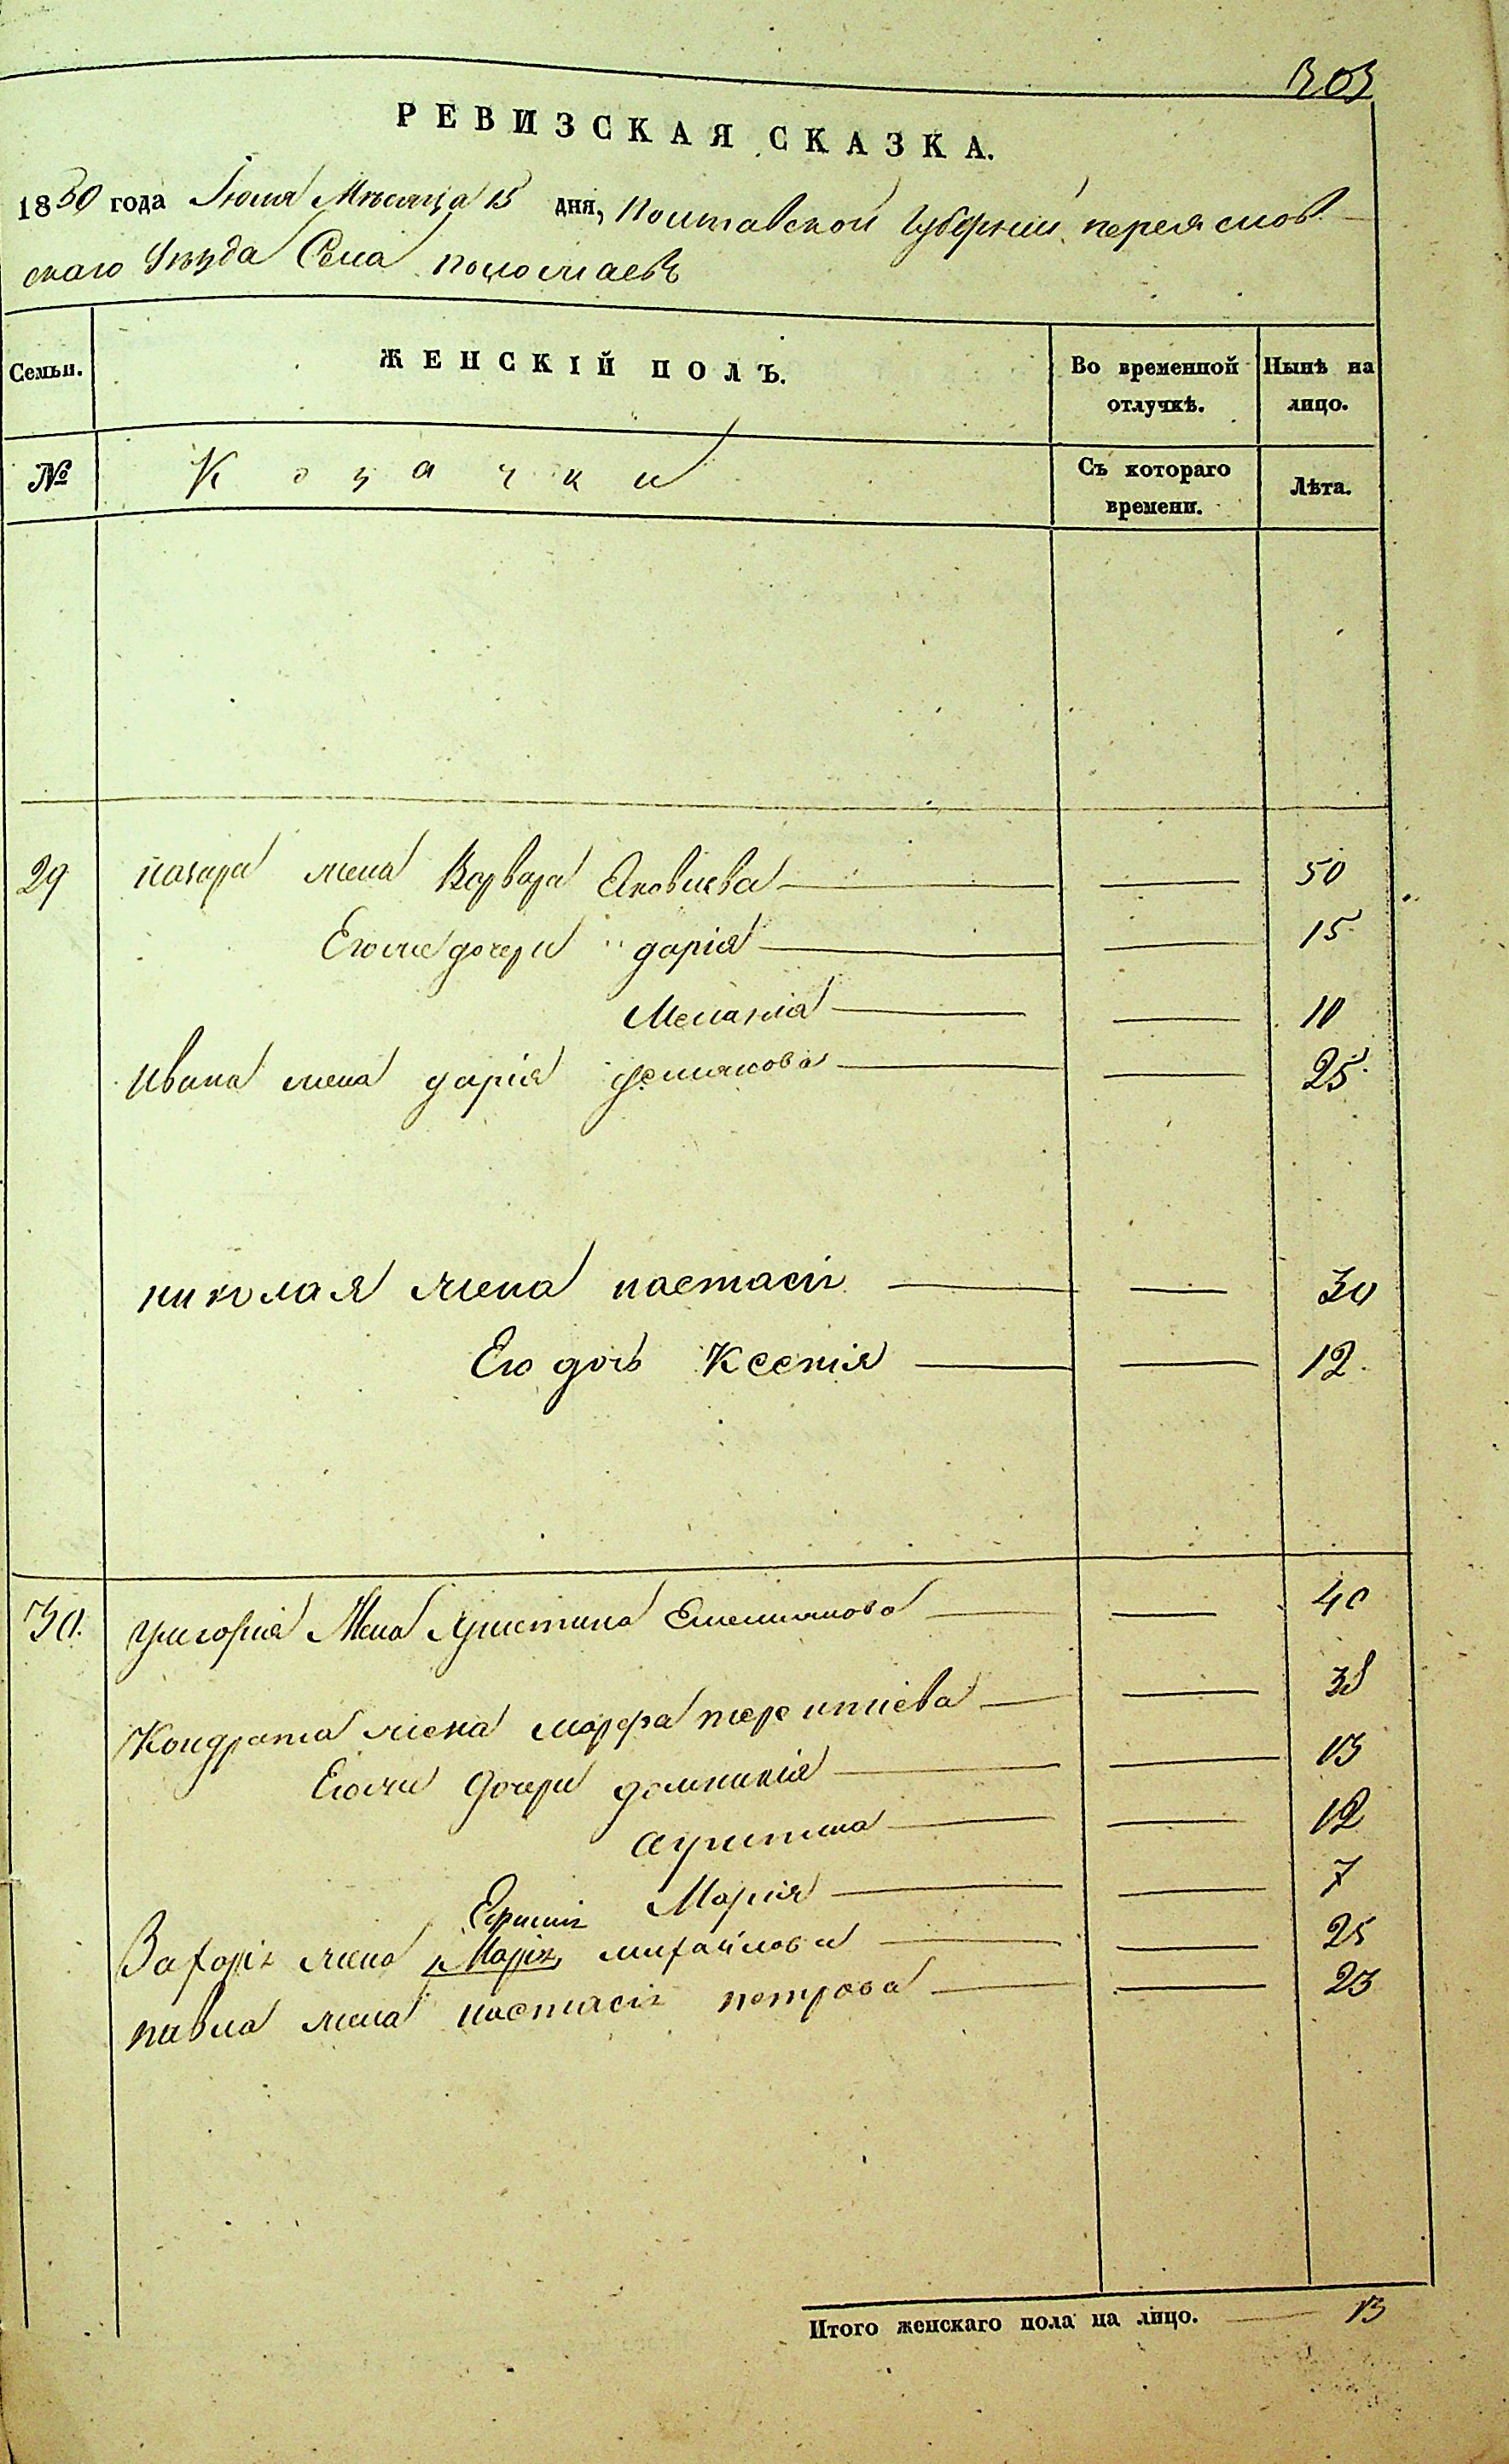 303
РЕВИЗСКАЯ СКАЗКА.
1850 года Іюля Мѣсяца 15 дня, Полтавской Губерніи переяслов
скаго Уѣзда Села
Семьи.
ЖЕНСКІЙ ПОЛЪ.
Во временной отлучкѣ.
Нынѣ на лицо.
№
Козачки
Съ котораго времени.
Лѣта.
29 назара жена Варвара Яковлева — — 50
Егоже дочери дарія — — 15
Меланія — — 10
Ивана жена дарія — — 25
николая жена настасія — — 30
Его дочь Ксенія — — 12
30. григорія Жена христина Емельянова — — 40
Кондрата жена марфа терентіева — — 38
Егоже дочери домникія — — 13
— — 12
Марія — — 7
Захарія жена Марія михайлова — — 25
павла жена настасія петрова — — 23
Итого женскаго пола на лицо. — 13